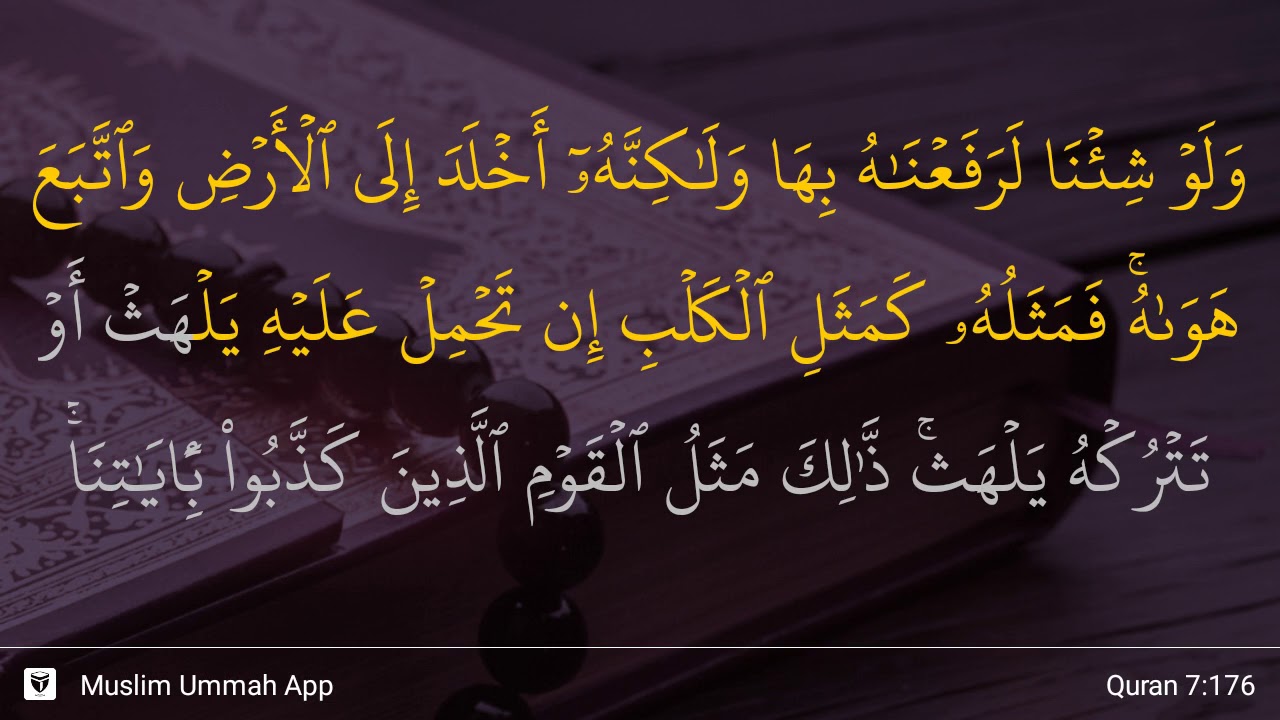 وَلَوۡ شِئۡنَا لَرَفَعۡنَـٰهُ بِهَا وَلَـٰكِنَّهُۥٓ أَخۡلَدَ إِلَى ٱلۡأَرۡضِ وَٱتَّبَعَ
هَوَىٰهُۚ فَمَثَلُهُۥ كَمَثَلِ ٱلۡكَلۡبِ إِن تَحۡمِلۡ عَلَيۡهِ يَلۡهَثۡ أَوۡ
تَتۡرُكۡهُ يَلۡهَثۚ ذَّٰلِكَ مَثَلُ ٱلۡقَوۡمِ ٱلَّذِينَ كَذَّبُواْ بِـَٔايَـٰتِنَاۚ
Muslim Ummah App
Quran 7:176